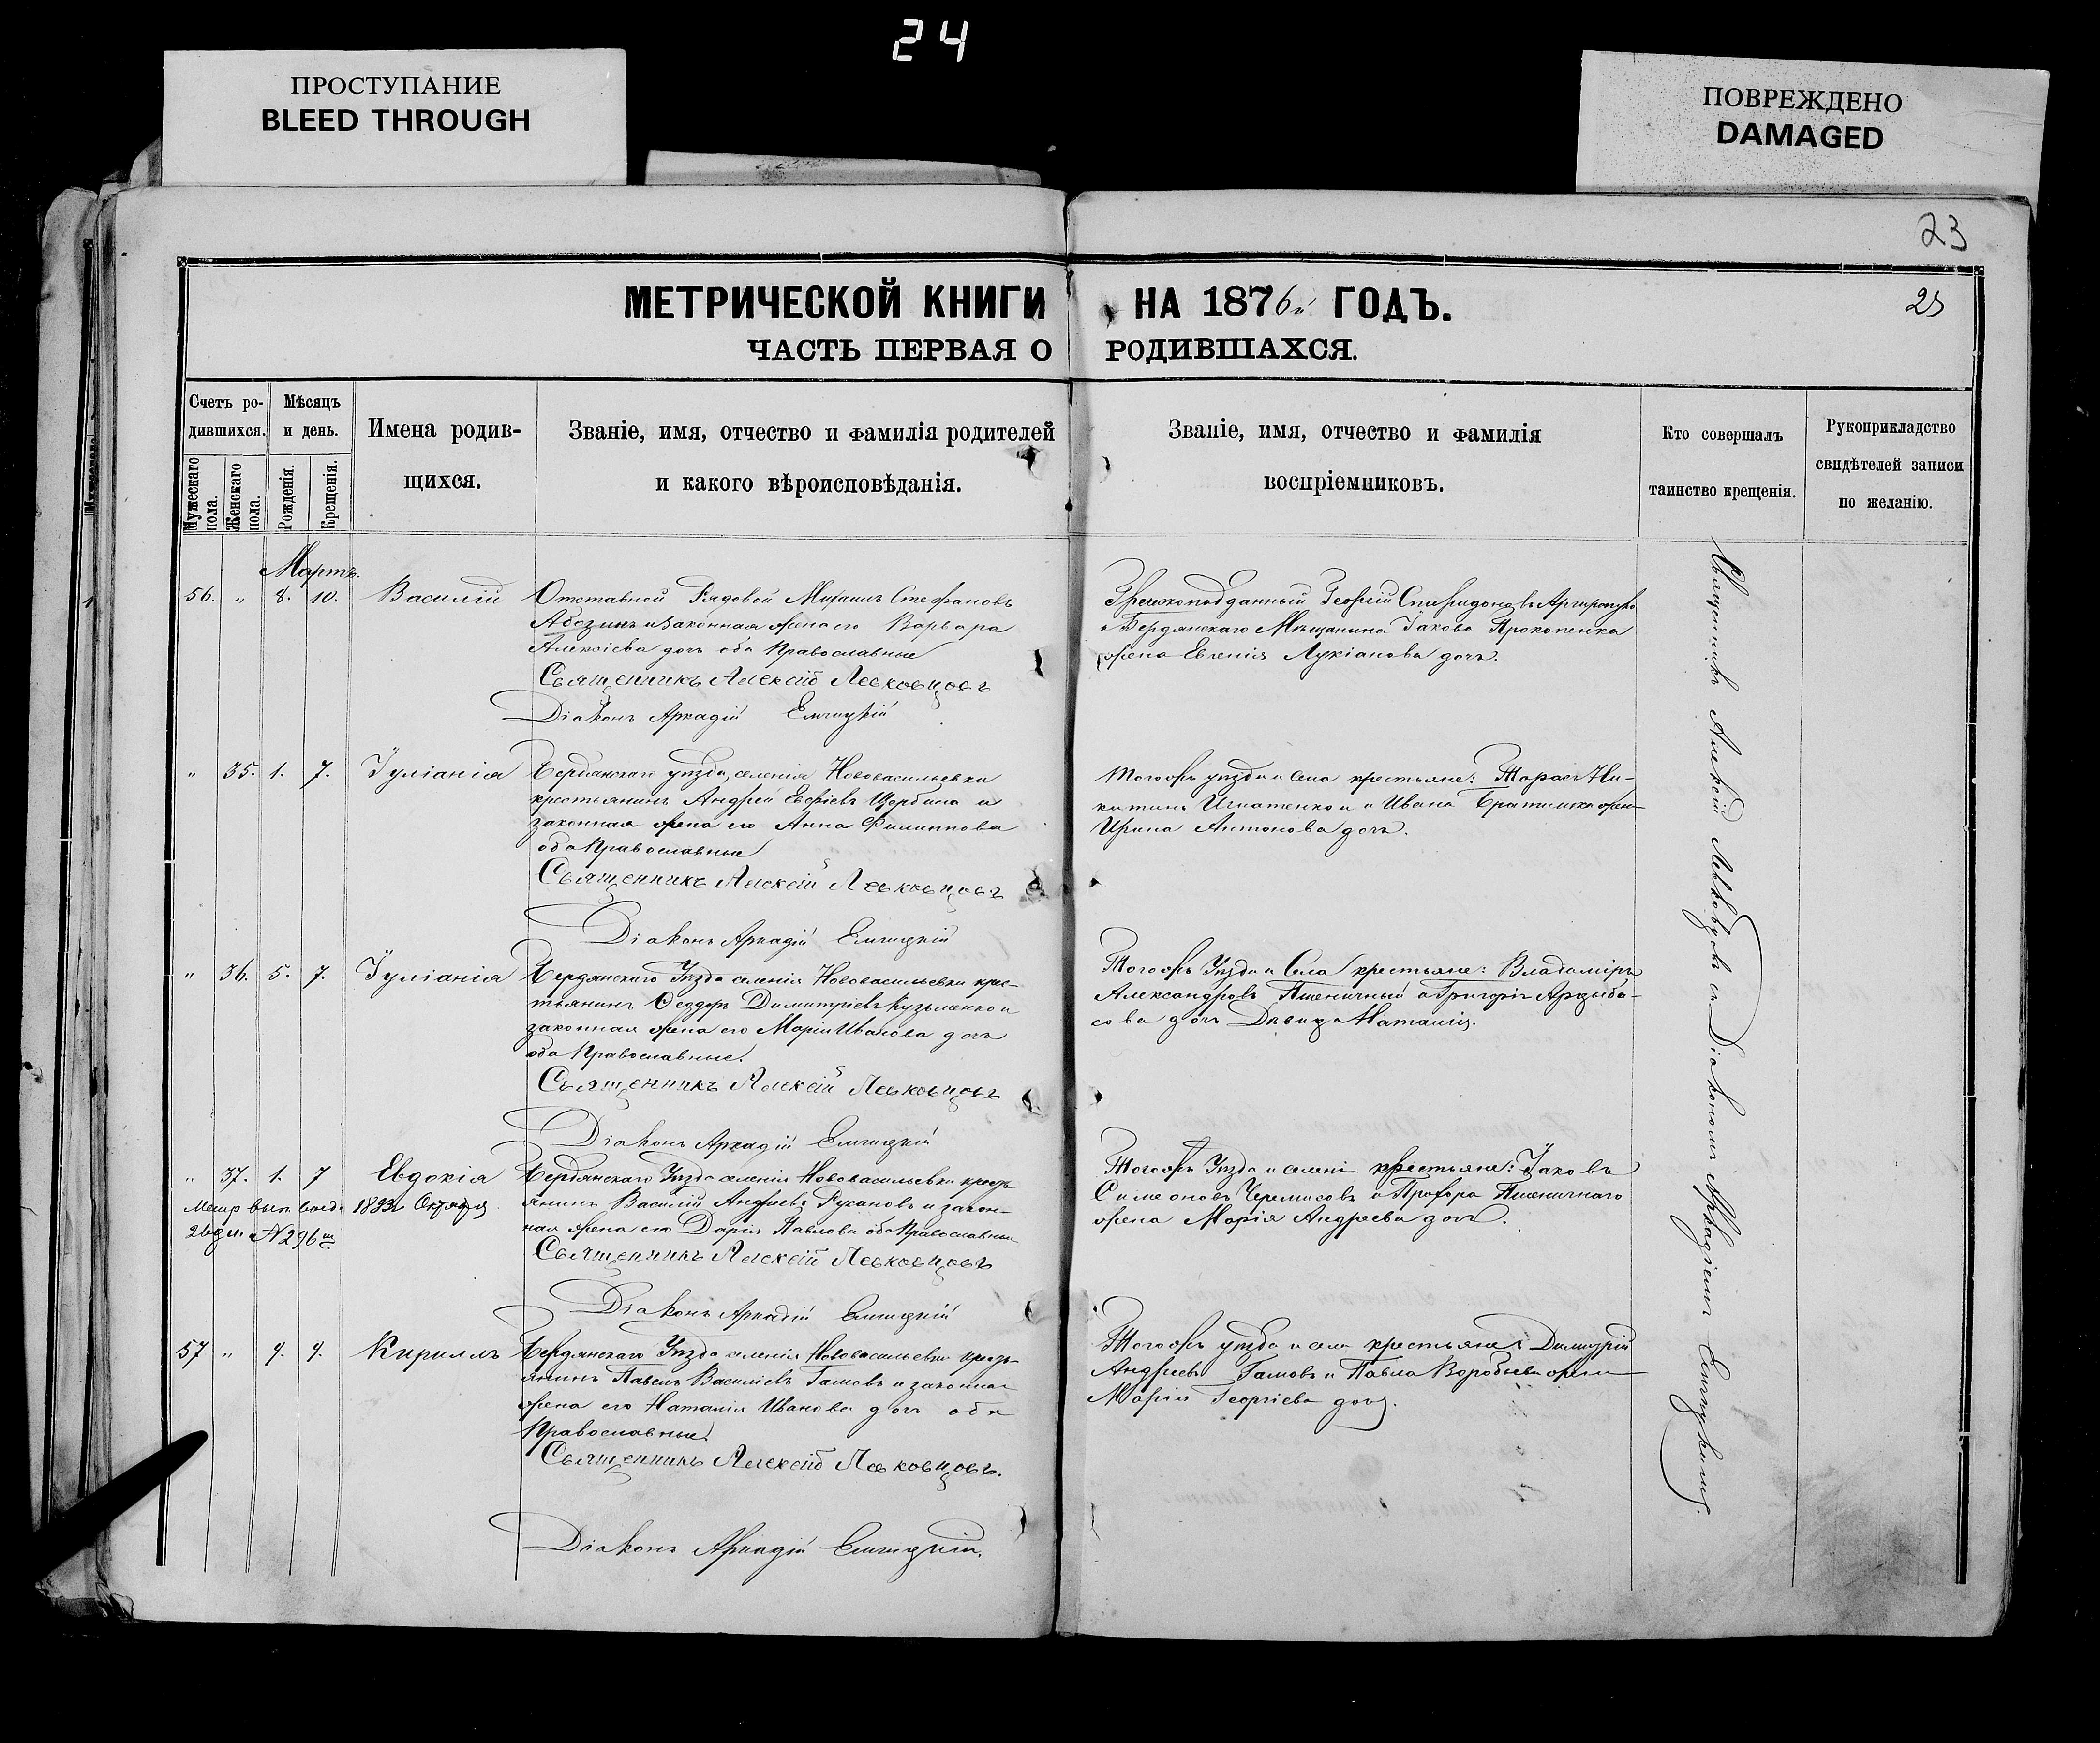 24
ПРОСТУПАНИЕ
BLEED THROUGH
ПОВРЕЖДЕНО
DAMAGED
23
МЕТРИЧЕСКОЙ КНИГИ НА 1876й ГОДЪ.
ЧАСТЬ ПЕРВАЯ О РОДИВШАХСЯ.
Счетъ ро-
дившихся.
Мужескаго пола.
Женскаго пола.
Мѣсяцъ
и день.
Рожденія.
Крещенія.
Имена родив-
щихся.
Званіе, имя, отчество и фамилія родителей
и какого вѣроисповѣданія.
Званіе, имя, отчество и фамилія
воспріемниковъ.
Кто совершалъ
таинство крещенія.
Рукоприкладство
свидѣтелей записи
по желанію.
Мартъ.
56. " 8. 10. Василій
Отставной Рядовой Михаилъ Стефановъ
и законная жена его Варвара
Алексіева дочь оба Православные
Священникъ Алексій Левковцовъ
Діаконъ Аркадій
Георгій Спиридоновъ
и Бердянскаго Мѣщанина Іакова Прокопенка
жена Евгенія Лукіанова дочь.
" 35. 1. 7. Іуліанія
Бердянскаго уѣзда, селенія Нововасильевки
крестьянинъ Андрей Щербина и
законная жена его Анна Филиппова
оба Православные
Священникъ Алексій Левковцовъ
Діаконъ Аркадій
Тогожъ уѣзда и села крестьяне: Тарасъ Ни-
китинъ Игнатенко и Ивана жена
Ирина Антонова дочь.
" 36. 5. 7. Іуліанія
Бердянскаго Уѣзда селенія Нововасильевки крес-
тьянинъ Ѳеодоръ Димитріевъ Кузьменко и
законная жена его Марія Иванова дочь
оба Православные.
Священникъ Алексій Левковцовъ
Діаконъ Аркадій
Тогожъ Уѣзда и Села крестьяне: Владиміръ
Александровъ Пшеничный и Григорія Арзыба-
сова дочь Дѣвица Наталія.
" 37. 1. 7 Евдокія
1893 Октября
26 дн. № 296
Бердянскаго Уѣзда селенія Нововасильевки кресть-
янинъ Василій Андреевъ Русановъ и закон-
ная жена его Дарія Павлова оба Православные
Священникъ Алексій Левковцовъ
Діаконъ Аркадій
Тогожъ Уѣзда и селенія крестьяне: Іаковъ
Симеоновъ Черемисовъ и Прохора Пшеничнаго
жена Марія Андреева дочь.
57 " 9. 9. Кириллъ
Бердянскаго Уѣзда селенія Нововасильевки кресть-
янинъ Павелъ Василіевъ Гамовъ и законная
жена его Наталія Иванова дочь оба
Православные.
Священникъ Алексій Левковцовъ.
Діаконъ Аркадій
Тогожъ уѣзда и села крестьяне: Димитрій
Андреевъ Гамовъ и Павла Воробьева жена
Марія Георгіева дочь.
Священникъ Алексій Левковцовъ съ Діакономъ Аркадіемъ